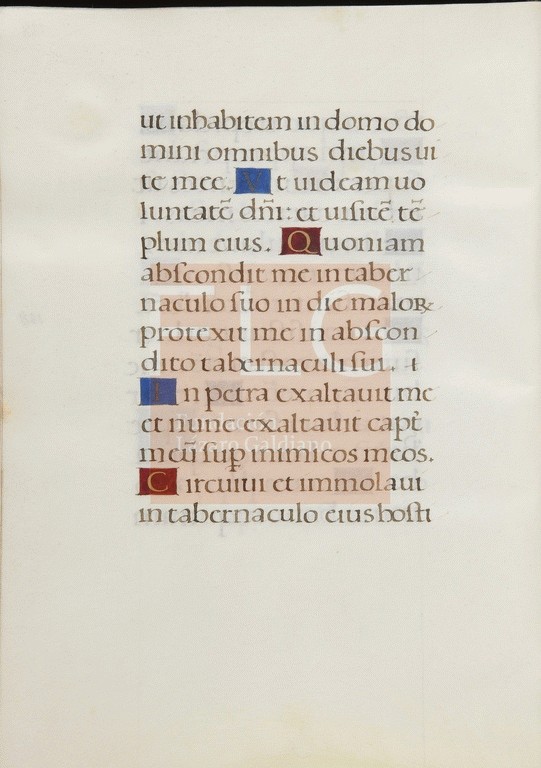 ut inhabitem in domo do
mini omnibus diebus ui
te mee. Ut uideam uo
luntatē dñi: et uisitē tē
plum eius. Quoniam
abſcondit me in taber
naculo ſuo in die maloꝝ
protexit me in abſcon
dito tabernaculi ſui.
In petra exaltauit me
et nunc exaltauit capt̄
meū ſuꝑ inimicos meos.
Circuiui et immolaui
in tabernaculo eius hoſti
FLG
Fundación
Lázaro Galdiano